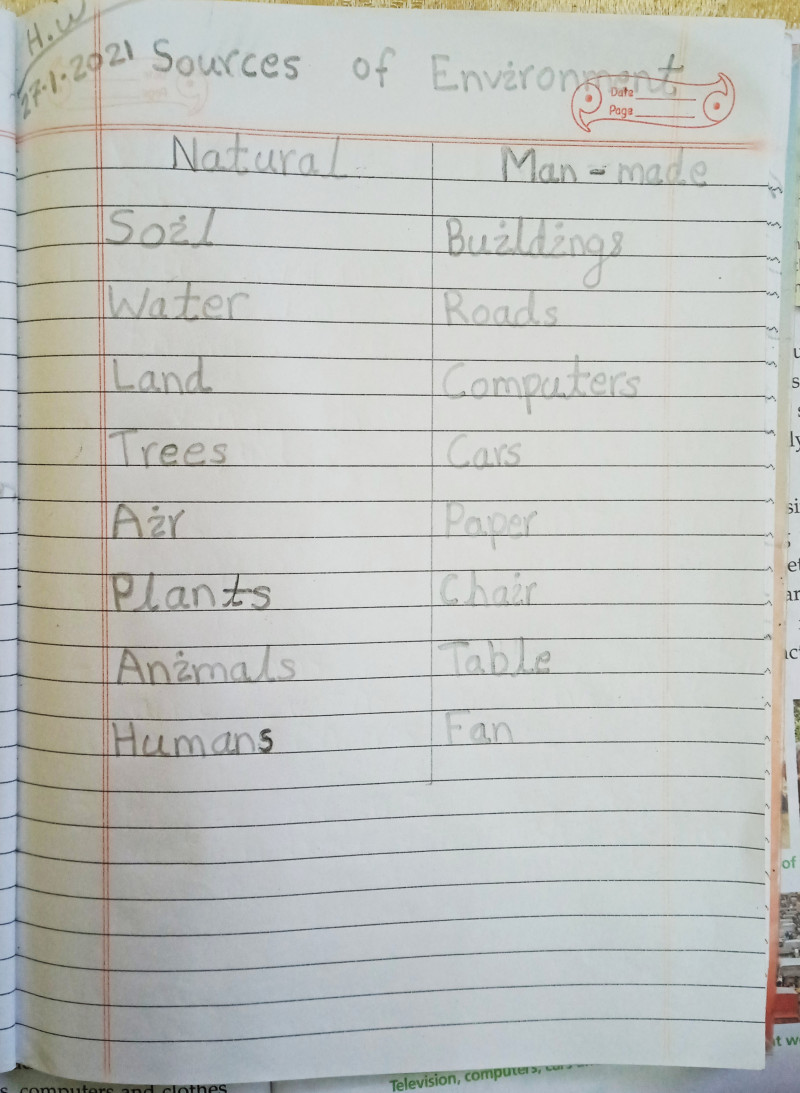 H.W
27.1.2021 Sources of Environment
Date
Page
Natural Man-made
Soil Buildings
Water Roads
Land Computers
Trees Cars
Air Paper
Plants Chair
Animals Table
Humans Fan
of
computers and clothes
Television, computers,